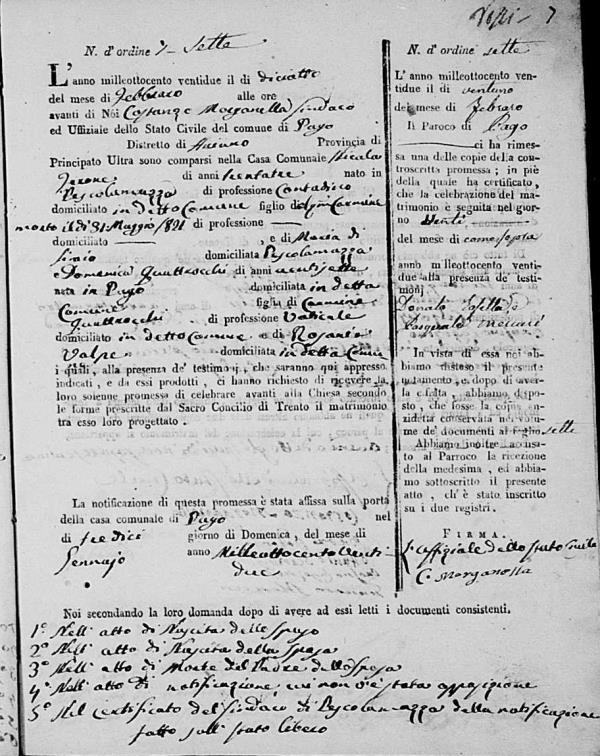 7
N. d'ordine 7 - Sette
L'anno milleottocento ventidue il dì
del mese di Febbraro alle ore
avanti di Noi Costanzo Morganella Sindaco
ed Uffiziale dello Stato Civile del comune di Pago
Distretto di Provincia di
Principato Ultra sono comparsi nella Casa Comunale Nicola
di anni trentatre nato in
Pescolamazza di professione Contadino
domiciliato in detto Comune figlio del Carmine
morto il dì 31 Maggio 1821 di professione
domiciliato , e di Maria di
domiciliata Pescolamazza
e Domenica Quattrocchi di anni ventisette
nata in Pago domiciliata in detto
Comune figlia di Carmine
Quattrocchi di professione Vaticale
domiciliato in detto Comune e di Rosaria
Volpe domiciliata in detto Comune
i quali, alla presenza de' testimonj, che saranno qui appresso
indicati, e da essi prodotti, ci hanno richiesto di ricevere la
loro solenne promessa di celebrare avanti alla Chiesa secondo
le forme prescritte dal Sacro Concilio di Trento il matrimonio
tra esso loro progettato.
La notificazione di questa promessa è stata affissa sulla porta
della casa comunale di Pago nel
dì tredici giorno di Domenica, del mese di
Gennajo anno Milleottocentoventi
due
N. d'ordine sette
L'anno milleottocento ven-
tidue il dì ventuno
del mese di Febraro
Il Paroco di Pago
ci ha rimes-
sa una delle copie della con-
troscritta promessa; in piè
della quale ha certificato,
che la celebrazione del ma-
trimonio è seguita nel gior-
no Venti
del mese di come sopra
anno milleottocento venti-
due alla presenza de' testi-
monj
Donato
Pasquale
In vista di essa noi ab-
biamo disteso il presente
notamento, e dopo di aver-
la cifrata, abbiamo dispo-
sto, che fosse la copia an-
zidetta conservata nel volu-
me de' documenti al foglio sette
Abbiamo inoltre accusa-
to al Parroco la ricezione
della medesima, ed abbia-
mo sottoscritto il presente
atto, ch'è stato inscritto
su i due registri.
FIRMA.
L'Uffiziale dello Stato Civile
C. Morganella
Noi secondando la loro domanda dopo di avere ad essi letti i documenti consistenti.
1° Nell'atto di Nascita dello Sposo
2° Nell'atto di Nascita della Sposa
3° Nell'atto di Morte del Padre dello Sposo
4° Nell'atto di notificazione, cui non v'è stata opposizione
5° Nel certificato del Sindaco di Pescolamazza della notificazione
fatto sull stato libero